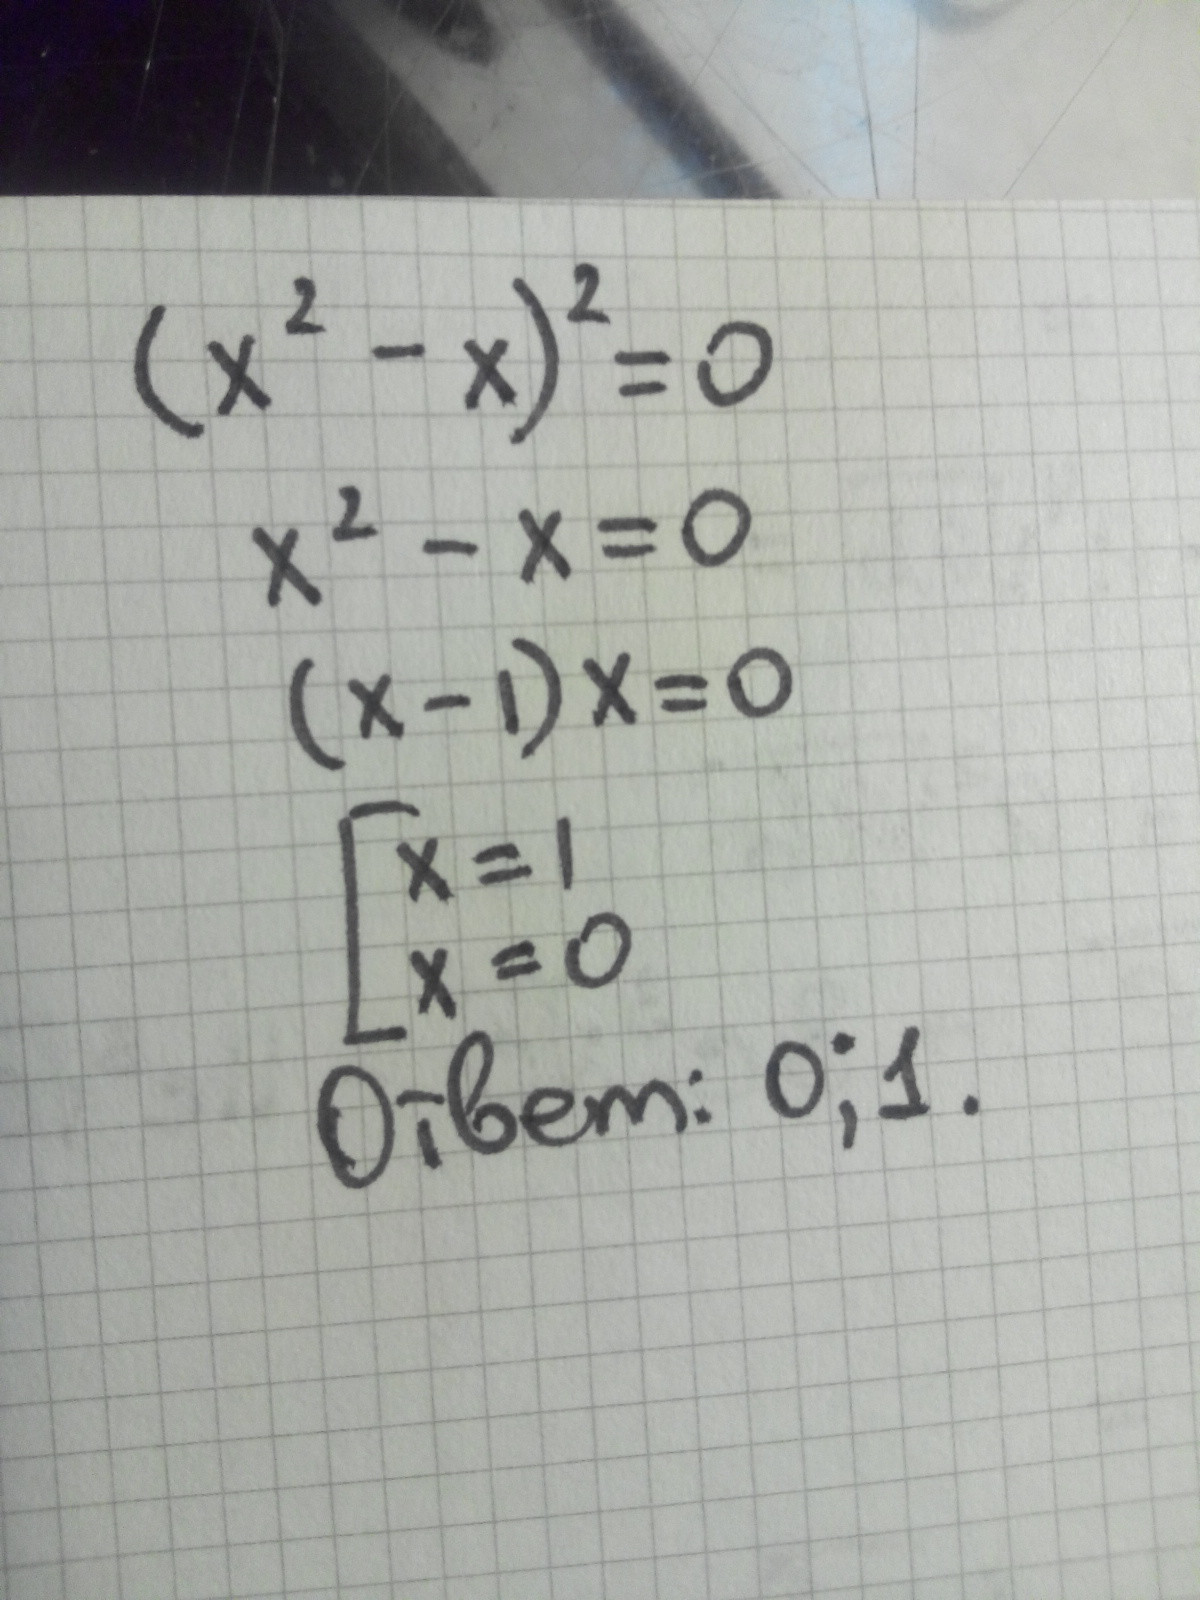 (x² - x)² = 0
x² - x = 0
(x - 1) x = 0
[ x = 1
x = 0
Ответ: 0; 1.